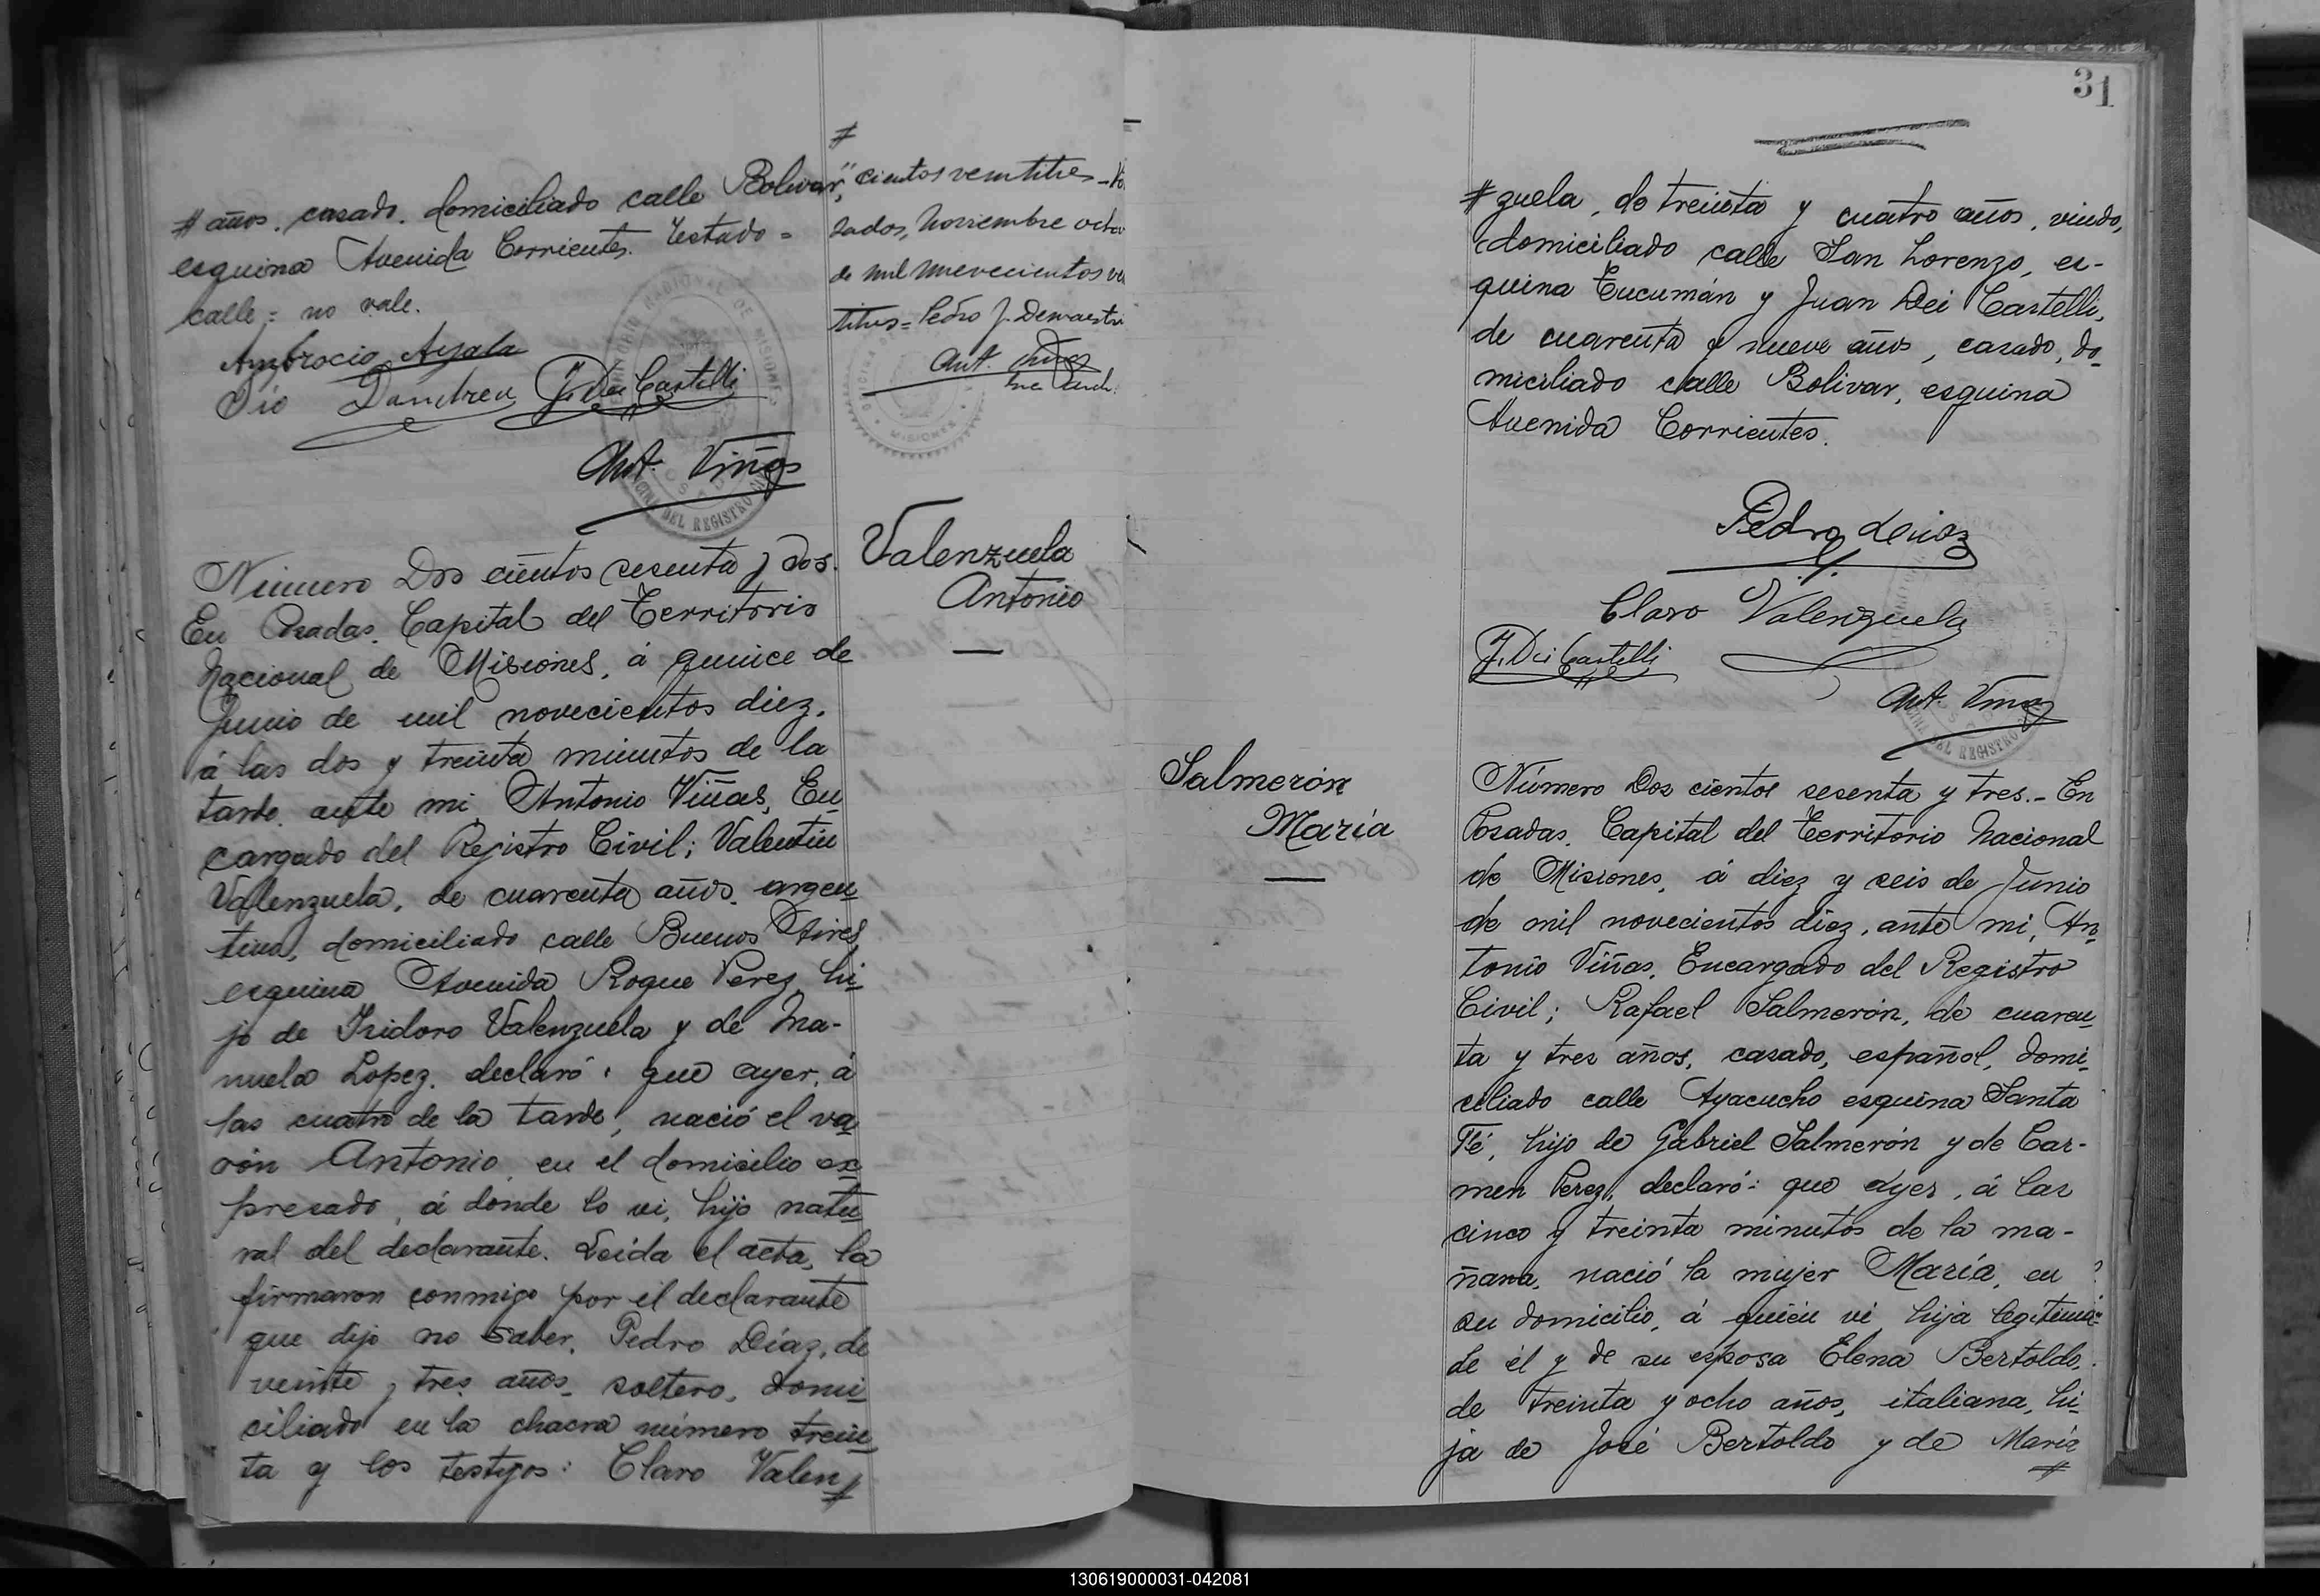 # años, casado, domiciliado calle Bolivar,
esquina Avenida Corrientes. Testado =
calle = no vale.
Ambrocio Ayala
Pío Dandreu J. Dei Castelli
Ant. Viñas
TERRITORIO NACIONAL DE MISIONES
OFICINA DEL REGISTRO
#
"cientos veintitres - Po
sadas, Noviembre octa
de mil novecientos ve
titres = Pedro J. Demaestri
Ant. Viñas
MISIONES
Valenzuela
Antonio
Número Dos cientos sesenta y dos.
En Posadas, Capital del Territorio
Nacional de Misiones, á quince de
Junio de mil novecientos diez,
á las dos y treinta minutos de la
tarde, ante mi Antonio Viñas, En
cargado del Registro Civil; Valentin
Valenzuela, de cuarenta años, argen
tino, domiciliado calle Buenos Aires,
esquina Avenida Roque Perez, hi
jo de Isidoro Valenzuela y de Ma-
nuela Lopez, declaró: que ayer, á
las cuatro de la tarde, nació el va
rón Antonio, en el domicilio ex
presado, á donde lo vi, hijo natu
ral del declarante. Leida el acta, la
firmaron conmigo por el declarante
que dijo no saber, Pedro Díaz, de
veinte y tres años, soltero, domi
ciliado en la chacra número trein
ta y los testigos: Claro Valen#
31
#zuela, de treinta y cuatro años, viudo,
domiciliado calle San Lorenzo, es-
quina Tucumán y Juan Dei Castelli,
de cuarenta y nueve años, casado, do
miciliado calle Bolivar, esquina
Avenida Corrientes.
Pedro Diaz
Claro Valenzuela
J. Dei Castelli
Ant. Viñas
DEL REGISTRO
Salmerón
María
Número Dos cientos sesenta y tres.- En
Posadas, Capital del Territorio Nacional
de Misiones, á diez y seis de Junio
de mil novecientos diez, ante mi, An
tonio Viñas, Encargado del Registro
Civil; Rafael Salmerón, de cuaren
ta y tres años, casado, español, domi
ciliado calle Ayacucho esquina Santa
Fé, hijo de Gabriel Salmerón y de Car-
men Perez, declaró: que ayer, á las
cinco y treinta minutos de la ma-
ñana, nació la mujer María, en
su domicilio, á quien vi, hija legitima
de él y de su esposa Elena Bertoldo,
de treinta y ocho años, italiana, hi
ja de José Bertoldo y de María
#
130619000031-042081